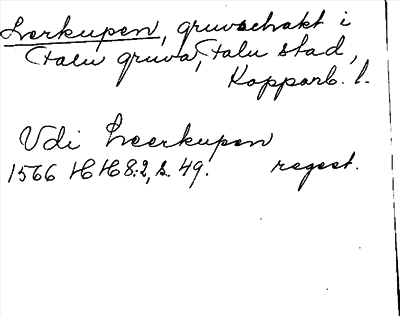 Lerkupen, gruvschakt i
Falu gruva, Falu stad,
Kopparb. l.
Vdi Leerkupen
1566 HH 8:2, s. 49. regest.